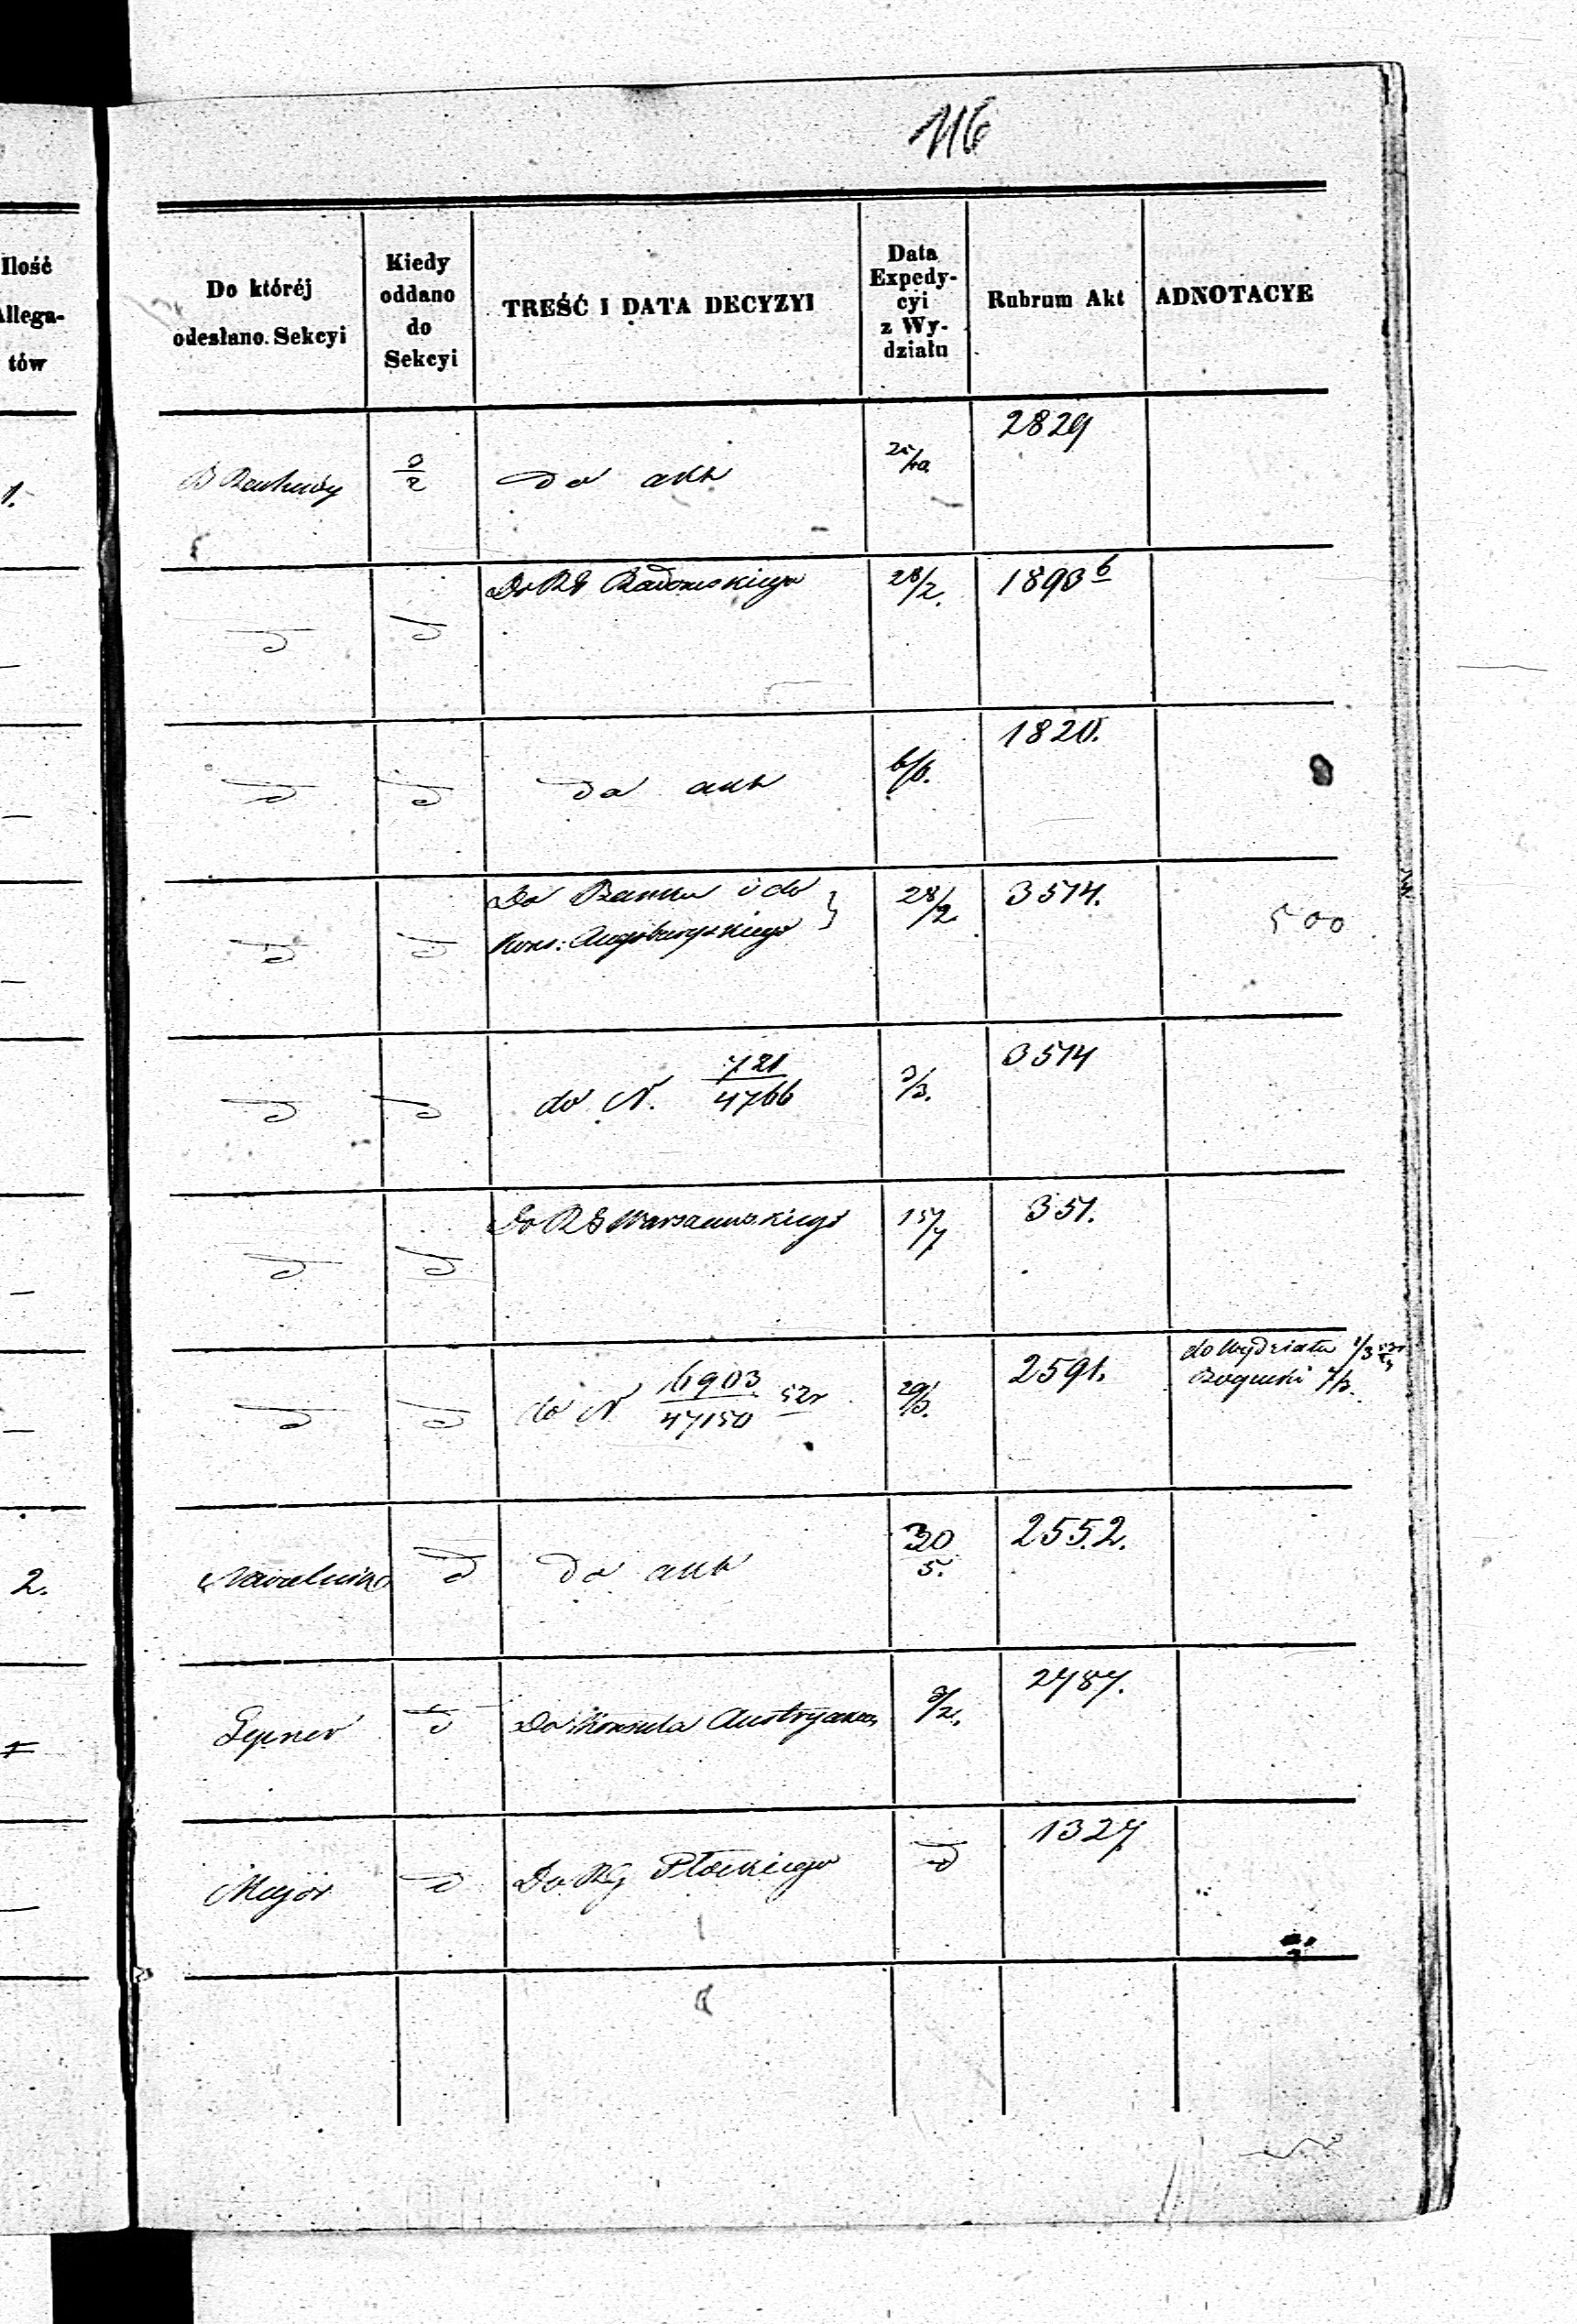 116
Ilość
Allega-
tów
Do któréj
odesłano Sekcyi
Kiedy
oddano
do
Sekcyi
TREŚĆ I DATA DECYZYI
Data
Expedy-
cyi
z Wy-
działu
Rubrum Akt
ADNOTACYE
1.
B
do akt
2829
Do RG Radomskiego
28/2.
1893 b
do akt
6/6.
1820.
Do Banku i do
Kons: Augsburgskiego
28/2.
3514.
500
do N. 721/4766
3/3.
3514
Do RG Warszawskiego
15/7
351.
do N 6903/47150 52r
29/3.
2591.
do Wydziału 1/3
Bogucki
2.
Naczelnik
do akt
30/5.
2552.
Lepner
Do Konsula Austryack
3/2.
2787.
Major
Do RG Płockiego
1327